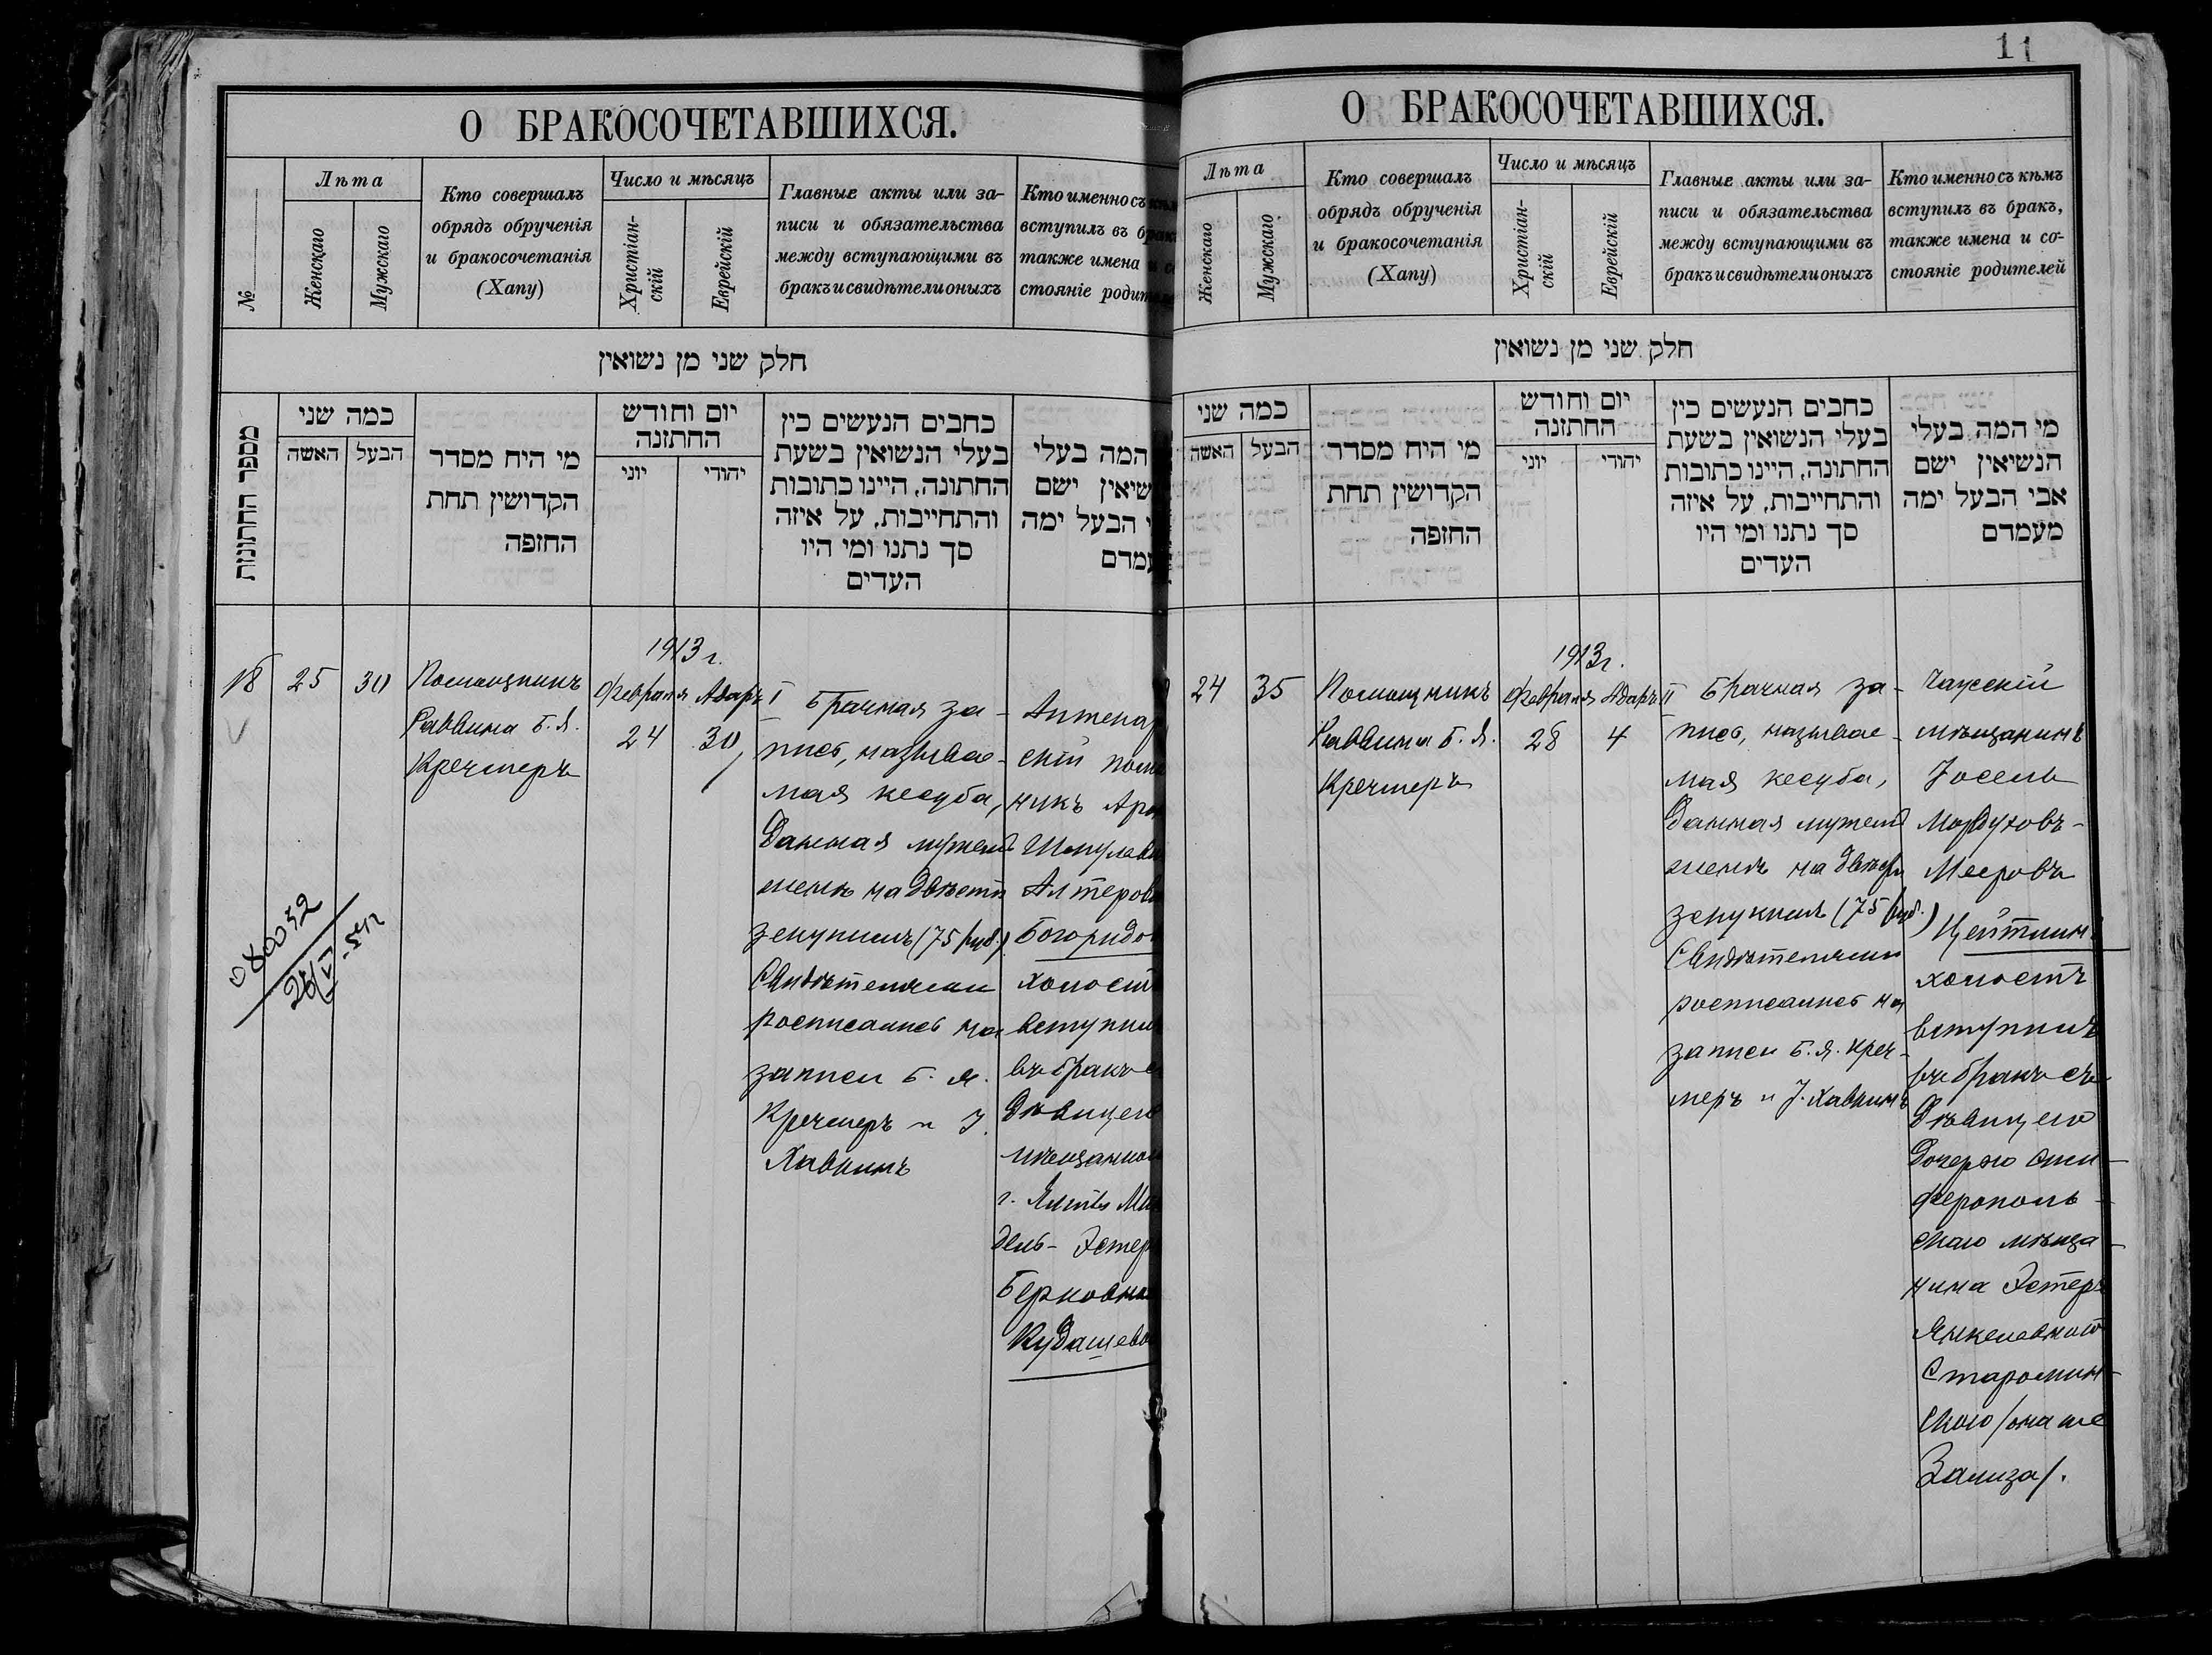 О БРАКОСОЧЕТАВШИХСЯ.
№
Лѣта
Женскаго
Мужскаго
Кто совершалъ
обрядъ обрученія
и бракосочетанія
(Хапу)
Число и мѣсяцъ
Христіан-
скій
Еврейскій
Главные акты или за-
писи и обязательства
между вступающими въ
бракъ и свидѣтели оныхъ
Кто именно съ
вступилъ въ
также имена
стояніе
חלק שני מן נשואין
מספר החתונות
כמה שני
האשה
הבעל
מי היח מסדר
הקדושין תחת
החופה
יום וחודש
החתונה
יוני
יהודי
כחבים הנעשים כין
בעלי הנשואין בשעת
החתונה, היינו כתובות
והתחייבות, על איזה
סך נתנו ומי היו
העדים
המה בעלי
שיאין ישם
הבעל ימה
עמדם
18
25
30
Помощникъ
Раввина Б. Я.
Кречмеръ
1913 г.
Февраля
24
Адаръ I
30
Брачная за-
пись, называе-
мая кесуба,
данная мужемъ
женѣ на двѣсти
зекукимъ (75 руб.)
Свидѣтелями
росписались на
записи Б. Я.
Кречмеръ и І.
Хавкинъ
Аптекар
скій помо
никъ Аро
Шмулеви
Алтеров
Богоридо
холост
вступил
въ бракъ с
дѣвицею
мѣщанкой
г. Ялты
дель- Эстер
Берковно
Кудашево
11
О БРАКОСОЧЕТАВШИХСЯ.
Лѣта
Женскаго
Мужскаго
Кто совершалъ
обрядъ обрученія
и бракосочетанія
(Хапу)
Число и мѣсяцъ
Христіан-
скій
Еврейскій
Главные акты или за-
писи и обязательства
между вступающими въ
бракъ и свидѣтели оныхъ
Кто именно съ кѣмъ
вступилъ въ бракъ,
также имена и со-
стояніе родителей
חלק שני מן נשואין
כמה שני
האשה
הבעל
מי היח מסדר
הקדושין תחת
החופה
יום וחודש
החתונה
יוני
יהודי
כחבים הנעשים כין
בעלי הנשואין בשעת
החתונה, היינו כתובות
והתחייבות, על איזה
סך נתנו ומי היו
העדים
מי המה בעלי
הנשיאין ישם
אבי הבעל ימה
מעמדם
24
35
Помощникъ
Раввина Б. Я.
Кречмеръ
1913 г.
Февраля
28
Адаръ II
4
Брачная за-
пись, называе-
мая кесуба,
данная мужемъ
женѣ на двѣсти
зекукимъ (75 руб.)
Свидѣтелями
росписались на
записи Б. Я. Креч-
меръ и І. Хавкинъ
Чаусскій
мѣщанинъ
Іосель
Мордуховъ-
Мееровъ
Цейтлинъ
холостъ
вступилъ
въ бракъ съ
дѣвицею
дочерью сим-
ферополь-
скаго мѣща-
нина Эстеръ
Янкелевной
Старомин-
ского /она же
Зализа/.